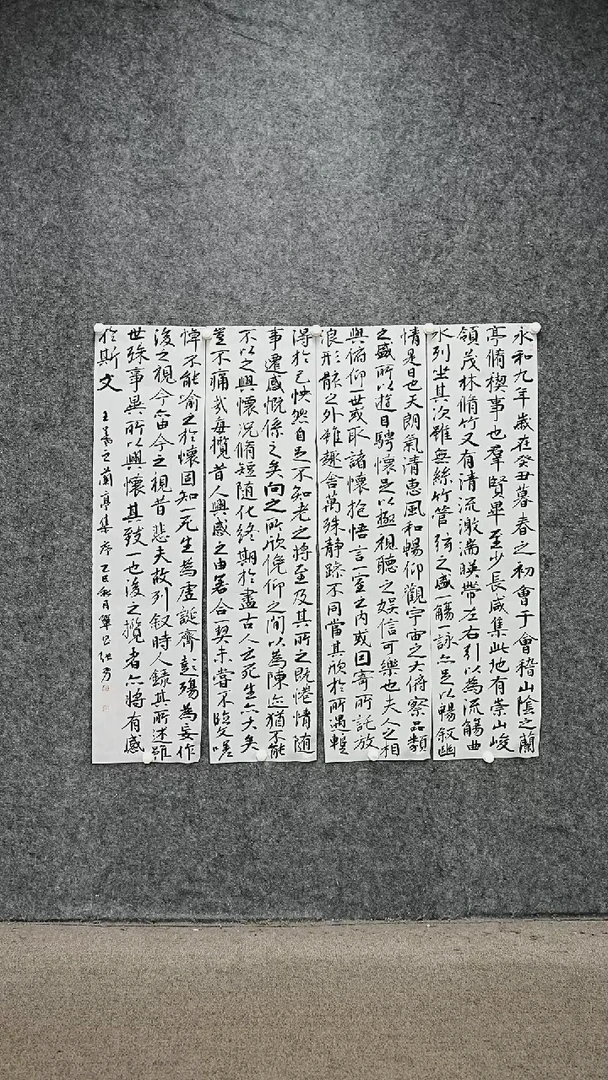 永和九年歲在癸丑暮春之初會于會稽山陰之蘭
亭脩禊事也羣賢畢至少長咸集此地有崇山峻
領茂林脩竹又有清流激湍暎帶左右引以為流觴曲
水列坐其次雖無絲竹管弦之盛一觴詠亦足以暢叙幽
情是日也天朗氣清惠風和暢仰觀宇宙之大俯察品類
之盛所以遊目騁懷足以極視聽之娛信可樂也夫人之相
與俯仰世或取諸懷抱悟言一室之内或因寄所託放
浪形骸之外雖趣舍萬殊靜躁不同當其欣於所遇蹔
得於己怏然自足不知老之將至及其所之既惓情隨
事遷感慨係之矣向之所欣俛仰之間以為陳迹猶不能
不以之興懷況脩短隨化終期於盡古人云死生亦大矣
豈不痛哉每攬昔人興感之由若合一契未嘗不臨文嗟
悼不能喻之於懷固知一死生為虛誕齊彭殤為妄作
後之視今亦由今之視昔悲夫故列叙時人錄其所述雖
世殊事異所以興懷其致一也後之攬者亦將有感
於斯文
王羲之蘭亭集序乙巳秋月